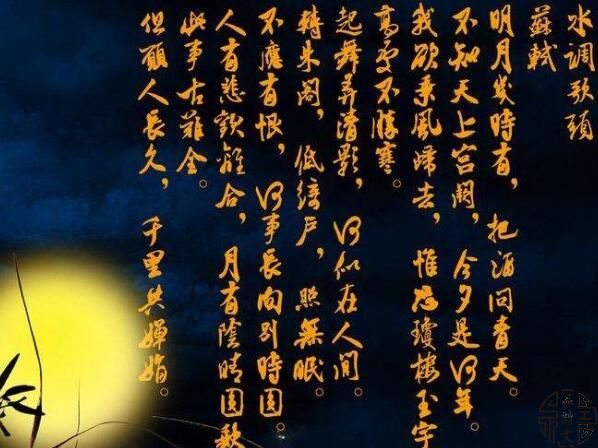 水調歌頭
蘇軾
明月幾時有，把酒問青天。
不知天上宮闕，今夕是何年。
我欲乘風歸去，惟恐瓊樓玉宇
高處不勝寒。
起舞弄清影，何似在人間。
轉朱閣，低綺戶，照無眠。
不應有恨，何事長向別時圓。
人有悲歡離合，月有陰晴圓缺
此事古難全。
但願人長久，千里共嬋娟。